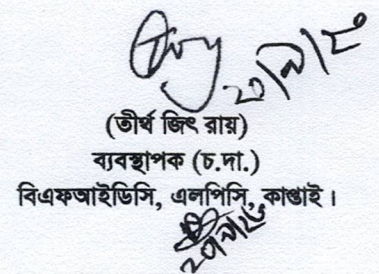 (তীর্থ জিৎ রায়)
ব্যবস্থাপক (চ.দা.)
বিএফআইডিসি, এলপিসি, কাপ্তাই।